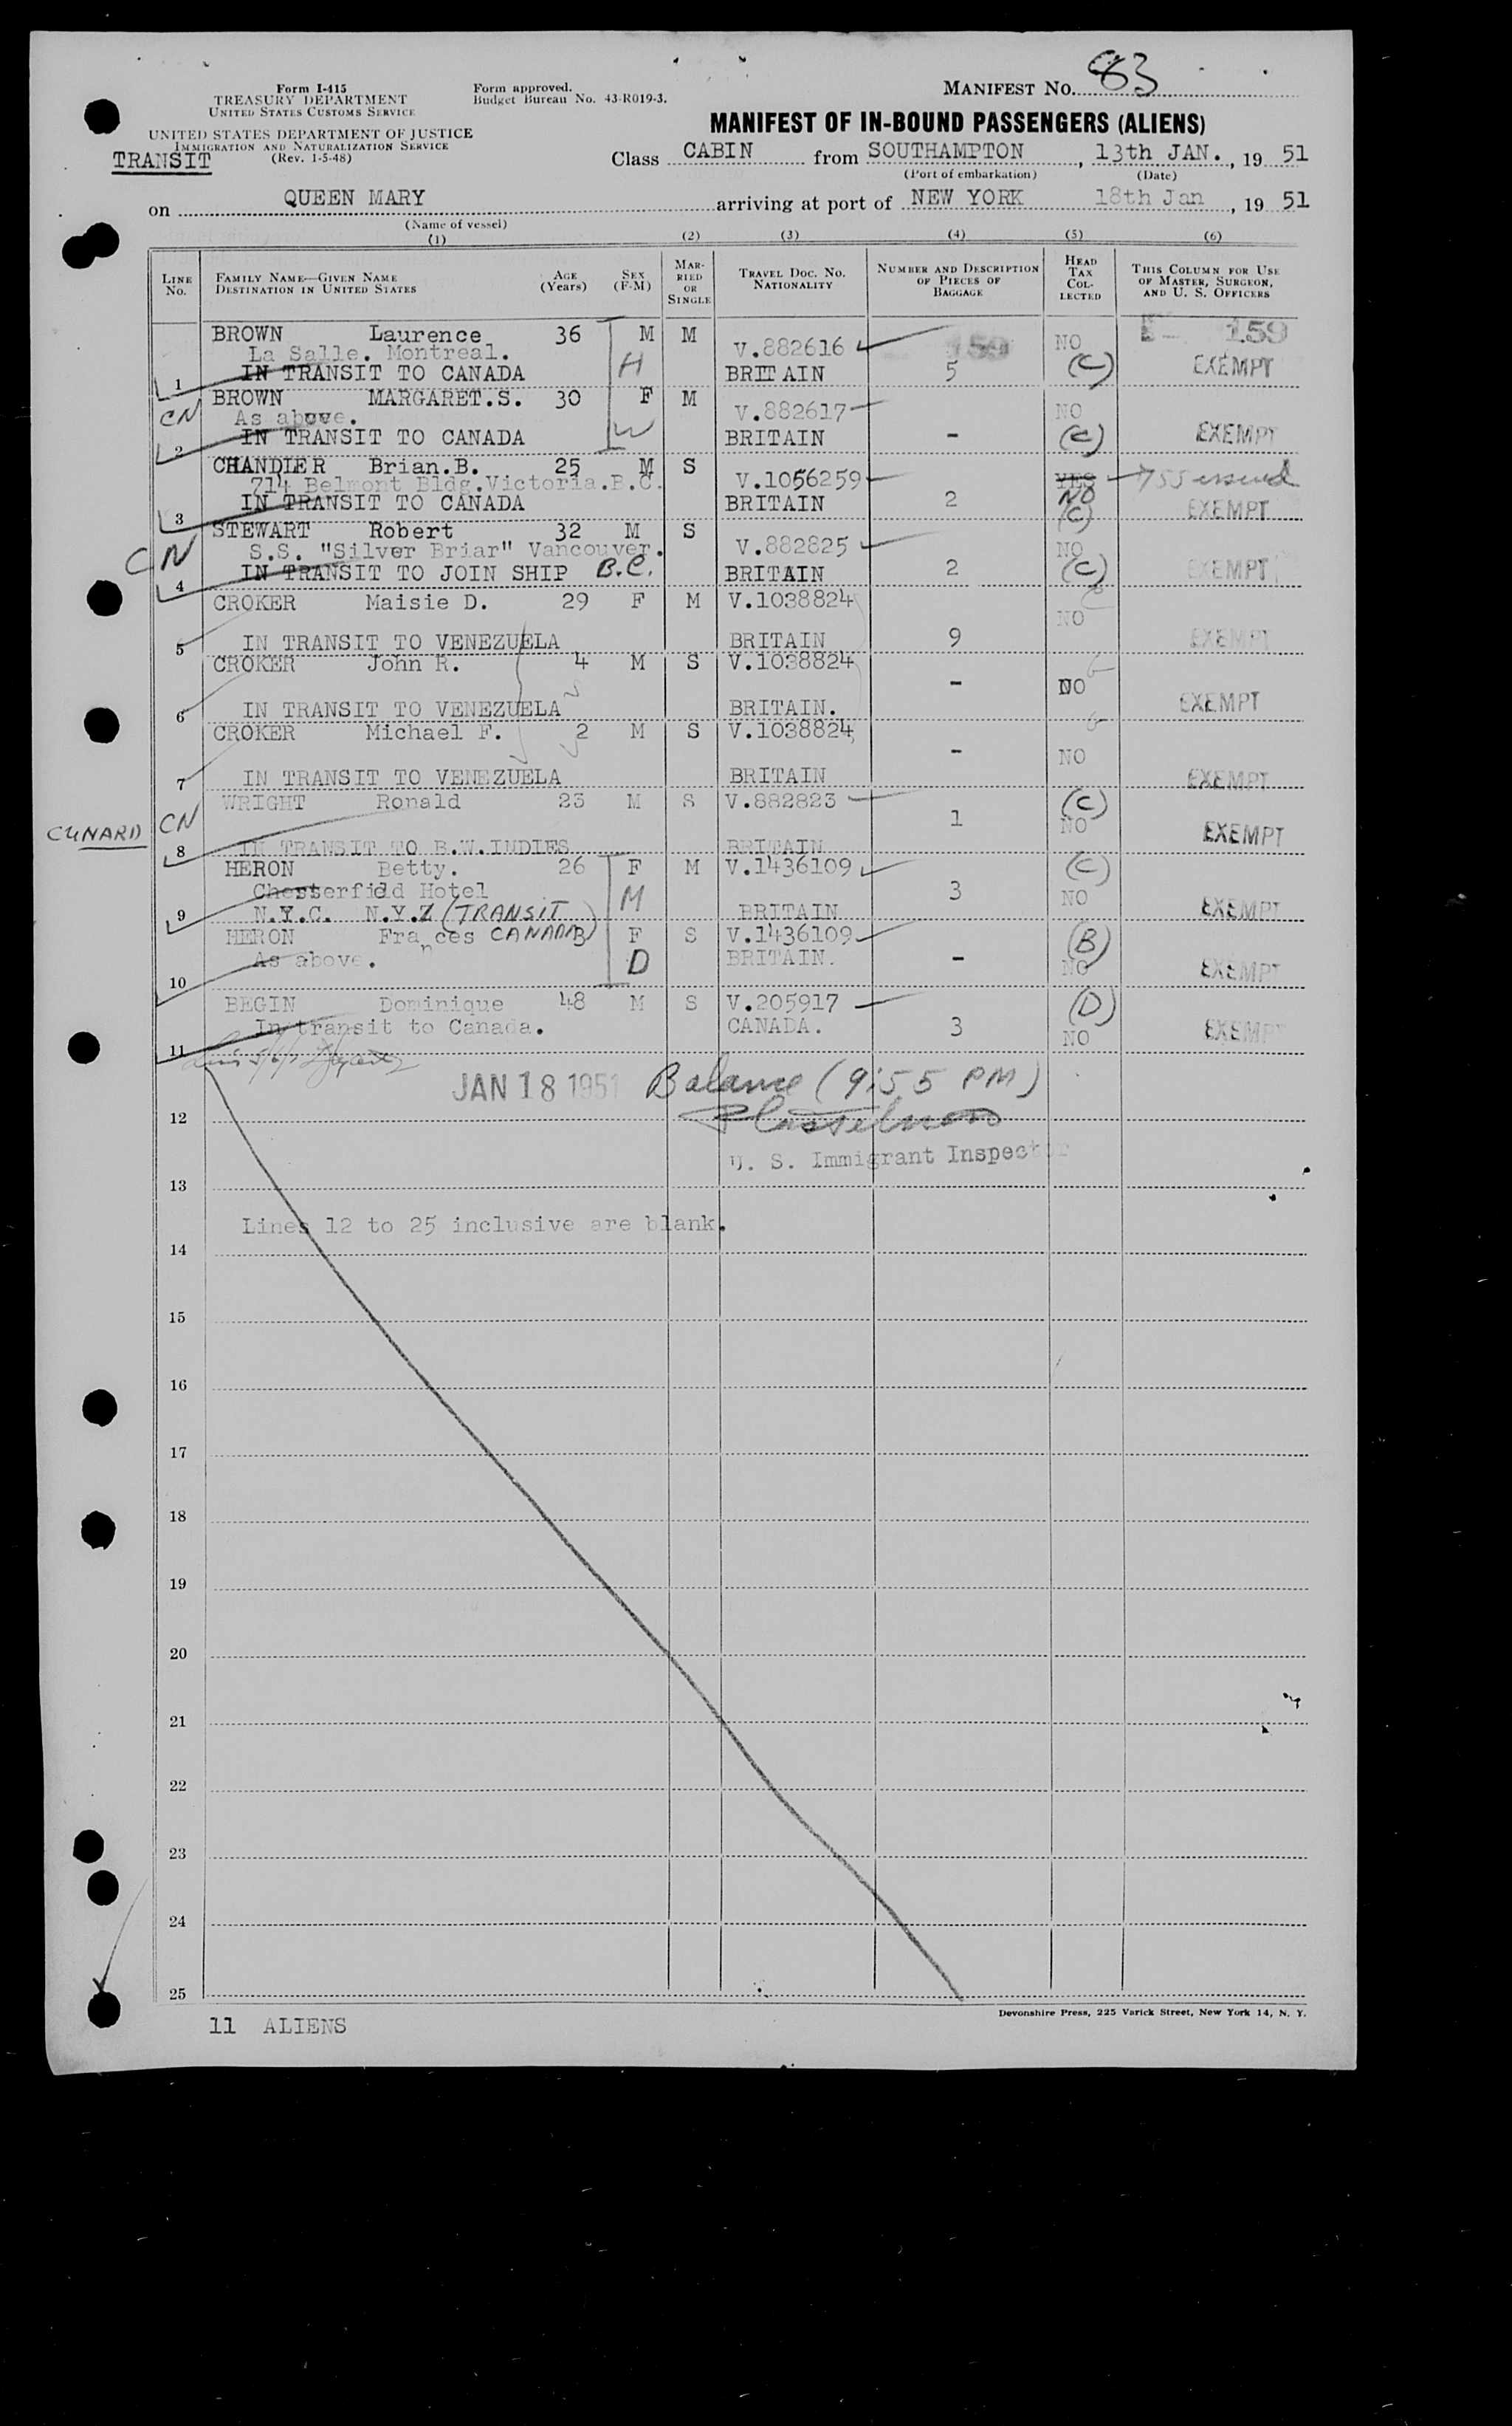 Form I-415
TREASURY DEPARTMENT
UNITED STATES CUSTOMS SERVICE
UNITED STATES DEPARTMENT OF JUSTICE
IMMIGRATION AND NATURALIZATION SERVICE
(Rev. 1-5-48)
TRANSIT
Form approved.
Budget Bureau No. 43-R019-3.
MANIFEST NO. 83
MANIFEST OF IN-BOUND PASSENGERS (ALIENS)
Class CABIN from SOUTHAMPTON, 13th JAN., 19 51
(Port of embarkation) (Date)
on QUEEN MARY arriving at port of NEW YORK 18th Jan, 19 51
(Name of vessel)
(1) (2) (3) (4) (5) (6)
LINE NO. FAMILY NAME—GIVEN NAME DESTINATION IN UNITED STATES AGE (Years) SEX (F-M) MARRIED OR SINGLE TRAVEL DOC. NO. NATIONALITY NUMBER AND DESCRIPTION OF PIECES OF BAGGAGE HEAD TAX COLLECTED THIS COLUMN FOR USE OF MASTER, SURGEON, AND U. S. OFFICERS
BROWN Laurence 36 M M V.882616 159 NO 159
La Salle. Montreal.
1 IN TRANSIT TO CANADA H BRITAIN 5 (C) EXEMPT
BROWN MARGARET.S. 30 F M V.882617 NO
CN As above.
2 IN TRANSIT TO CANADA W BRITAIN - (C) EXEMPT
CHANDLER Brian.B. 25 M S V.1056259 YES 755 issued
714 Belmont Bldg.Victoria.B.C. NO
3 IN TRANSIT TO CANADA BRITAIN 2 (C) EXEMPT
STEWART Robert 32 M S V.882825 NO
CN S.S. "Silver Briar" Vancouver.
4 IN TRANSIT TO JOIN SHIP B.C. BRITAIN 2 (C) EXEMPT
CROKER Maisie D. 29 F M V.1038824 NO
5 IN TRANSIT TO VENEZUELA BRITAIN 9 EXEMPT
CROKER John R. 4 M S V.1038824 - NO
6 IN TRANSIT TO VENEZUELA BRITAIN. EXEMPT
CROKER Michael F. 2 M S V.1038824 - NO
7 IN TRANSIT TO VENEZUELA BRITAIN EXEMPT
WRIGHT Ronald 23 M S V.882823 1 (C) NO
CUNARD CN
8 IN TRANSIT TO B.W.INDIES BRITAIN EXEMPT
HERON Betty. 26 F M V.1436109 (C)
Chesterfield Hotel M 3 NO
9 N.Y.C. N.Y.Z (TRANSIT BRITAIN EXEMPT
HERON Frances CANADA) 3 F S V.1436109 (B)
As above. D BRITAIN. - NO EXEMPT
10
BEGIN Dominique 48 M S V.205917 (D)
In transit to Canada. CANADA. 3 NO EXEMPT
11
JAN 18 1951 Balance (9:55 PM)
12
U. S. Immigrant Inspector
13
Lines 12 to 25 inclusive are blank.
14
15
16
17
18
19
20
21
22
23
24
25
Devonshire Press, 225 Varick Street, New York 14, N. Y.
11 ALIENS